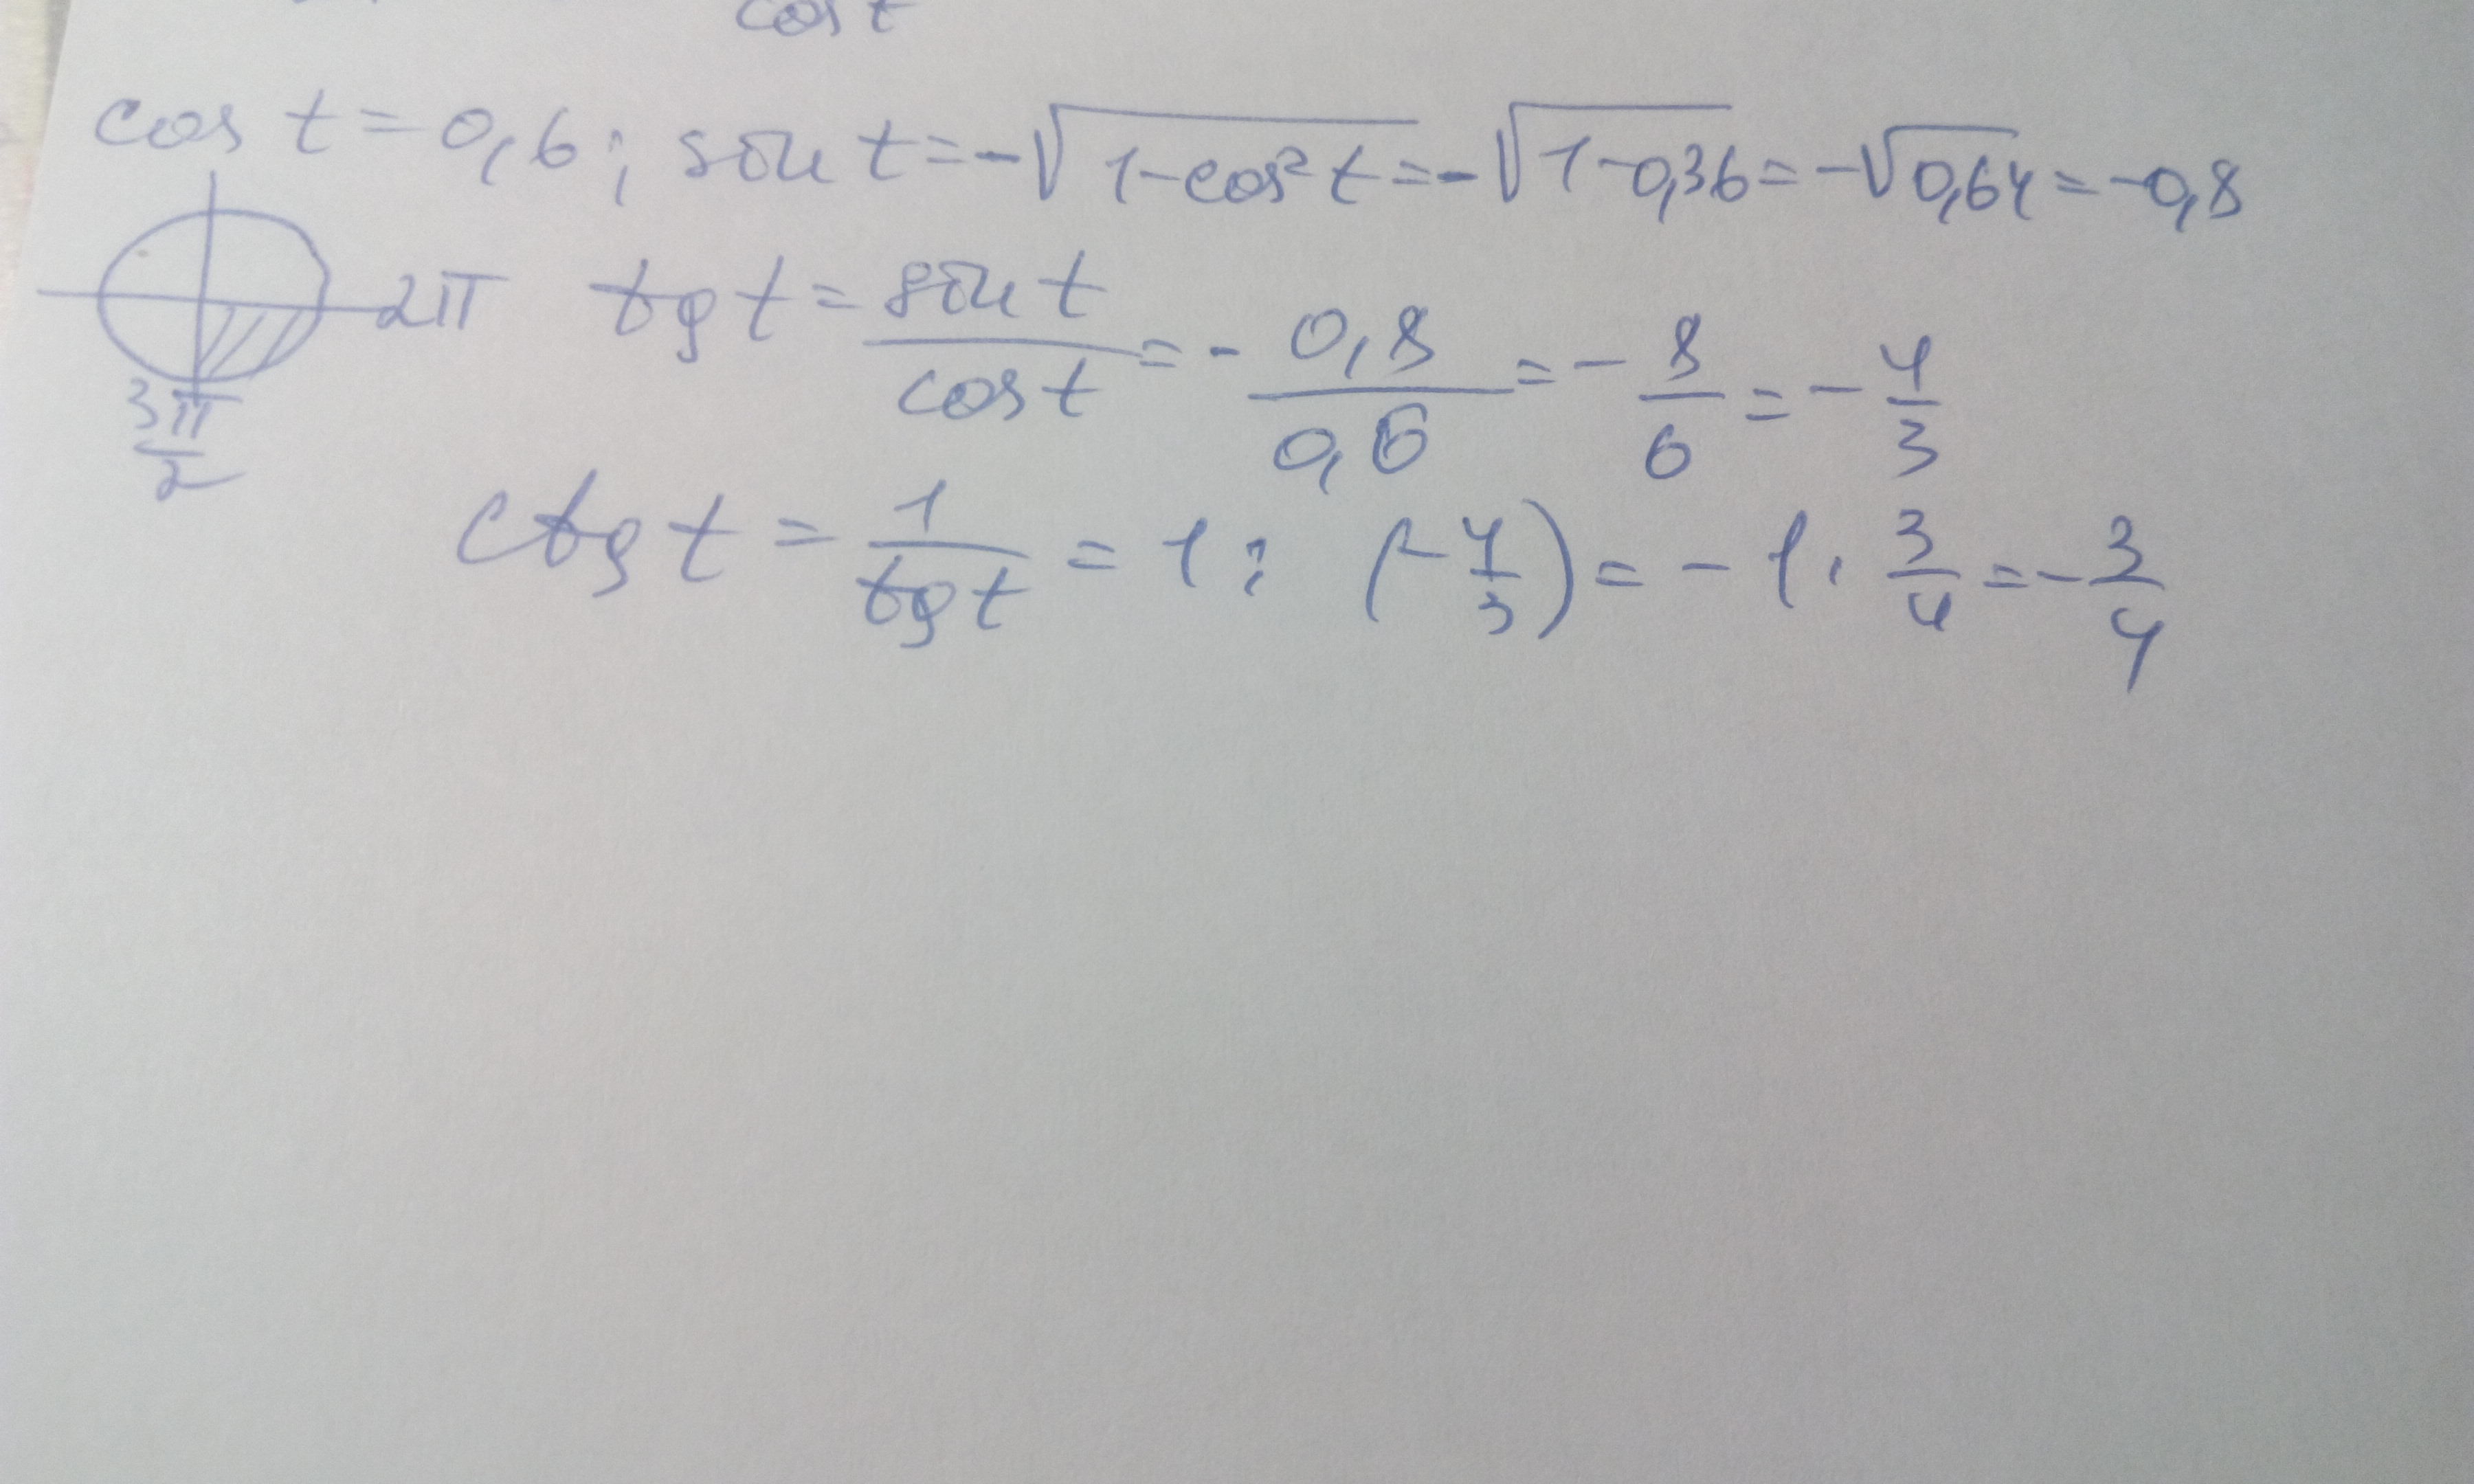 cos t
cos t = 0,6; sin t = -√(1-cos² t) = -√(1-0,36) = -√0,64 = -0,8
2π
3π/2
tg t = sin t / cos t = - 0,8/0,6 = - 8/6 = - 4/3
ctg t = 1/tg t = 1 : (-4/3) = - 1 · 3/4 = - 3/4